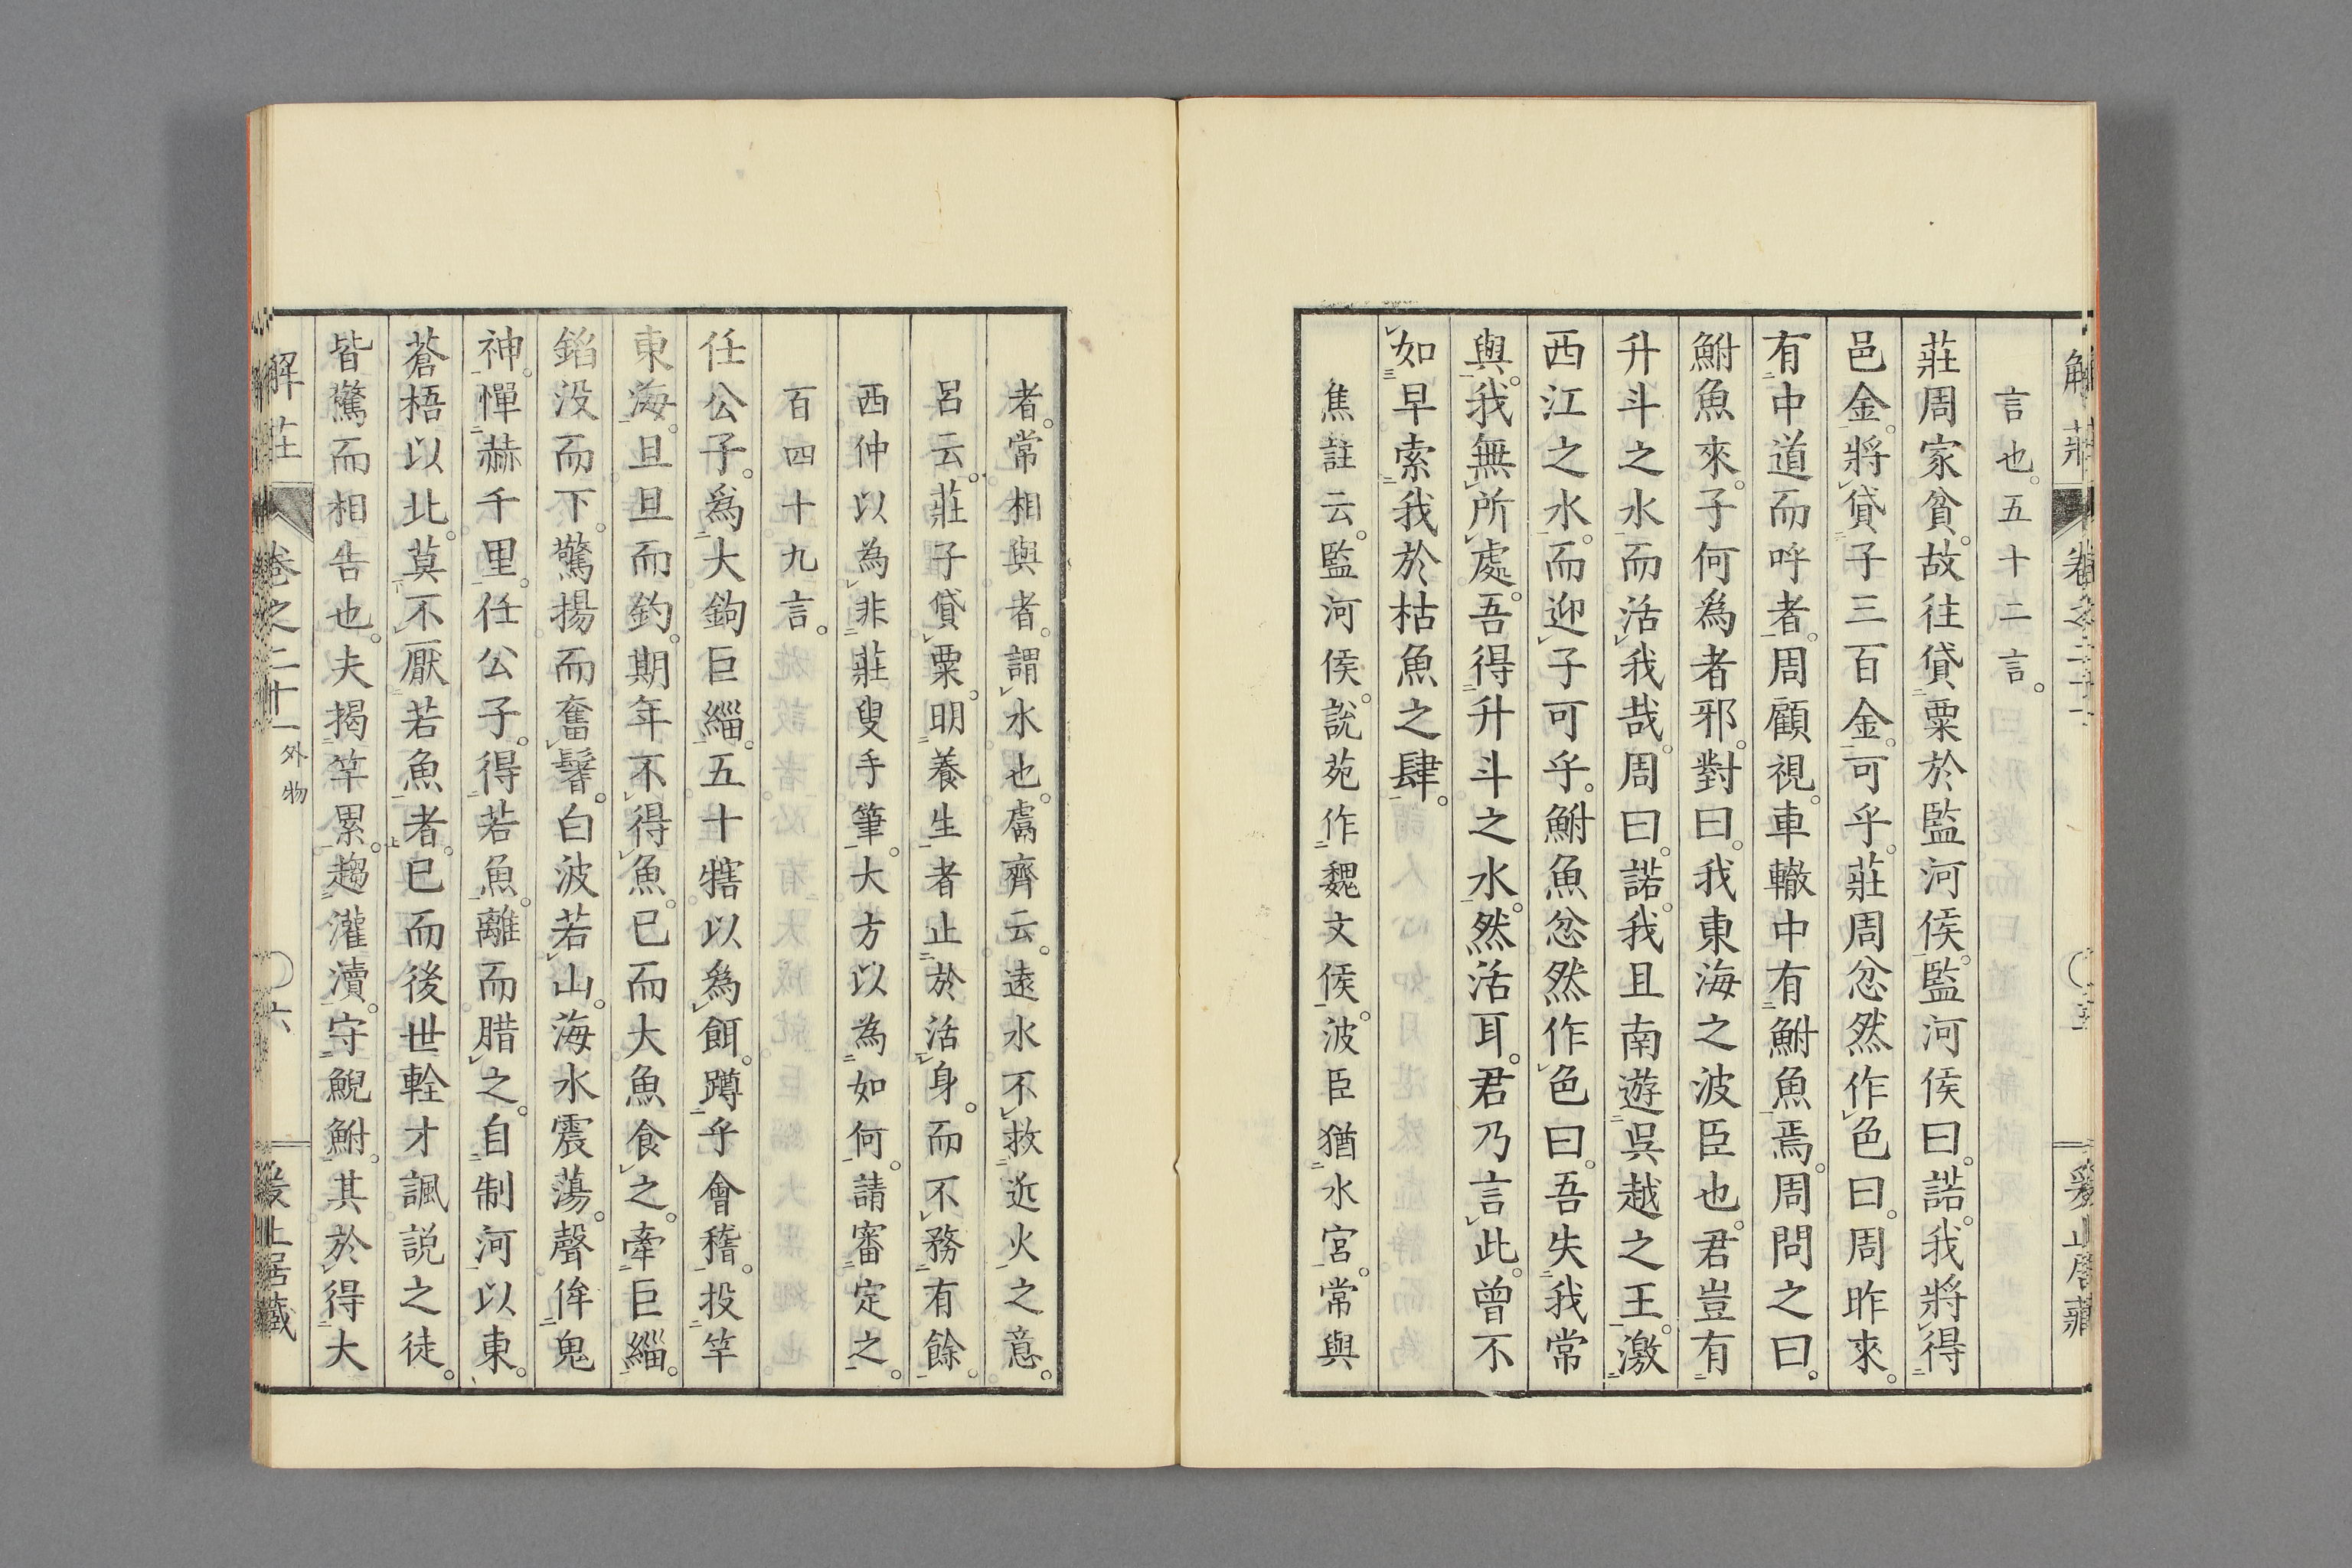 言也。五十二言。
莊周家貧。故往貸粟於監河侯。監河侯曰。諾。我將得
邑金。將貸子三百金。可乎。莊周忿然作色曰。周昨來。
有中道而呼者。周顧視。車轍中有鮒魚焉。周問之曰。
鮒魚來。子何為者邪。對曰。我東海之波臣也。君豈有
升斗之水而活我哉。周曰。諾。我且南遊吳越之王。激
西江之水。而迎子可乎。鮒魚忿然作色曰。吾失我常
與。我無所處。吾得升斗之水。然活耳。君乃言此。曾不
如早索我於枯魚之肆。
焦註云。監河侯。說苑作魏文侯。波臣猶水宮。常與
者。常相與者。謂水也。鬳齊云。遠水不救近火之意。
呂云。莊子貸粟。明養生者止於活身。而不務有餘。
西仲以為非莊叟手筆。大方以為如何。請審定之。
百四十九言。
任公子。為大鉤巨緇。五十犗以為餌。蹲乎會稽。投竿
東海。旦旦而釣。期年不得魚。已而大魚食之。牽巨緇。
錎没而下。驚揚而奮鬐。白波若山。海水震蕩。聲侔鬼
神。憚赫千里。任公子。得若魚。離而腊之。自制河以東。
蒼梧以北。莫不厭若魚者。已而後世輇才諷説之徒。
皆驚而相告也。夫揭竿累。趨灌瀆。守鯢鮒。其於得大
解莊 卷之二十一 外物 〇六